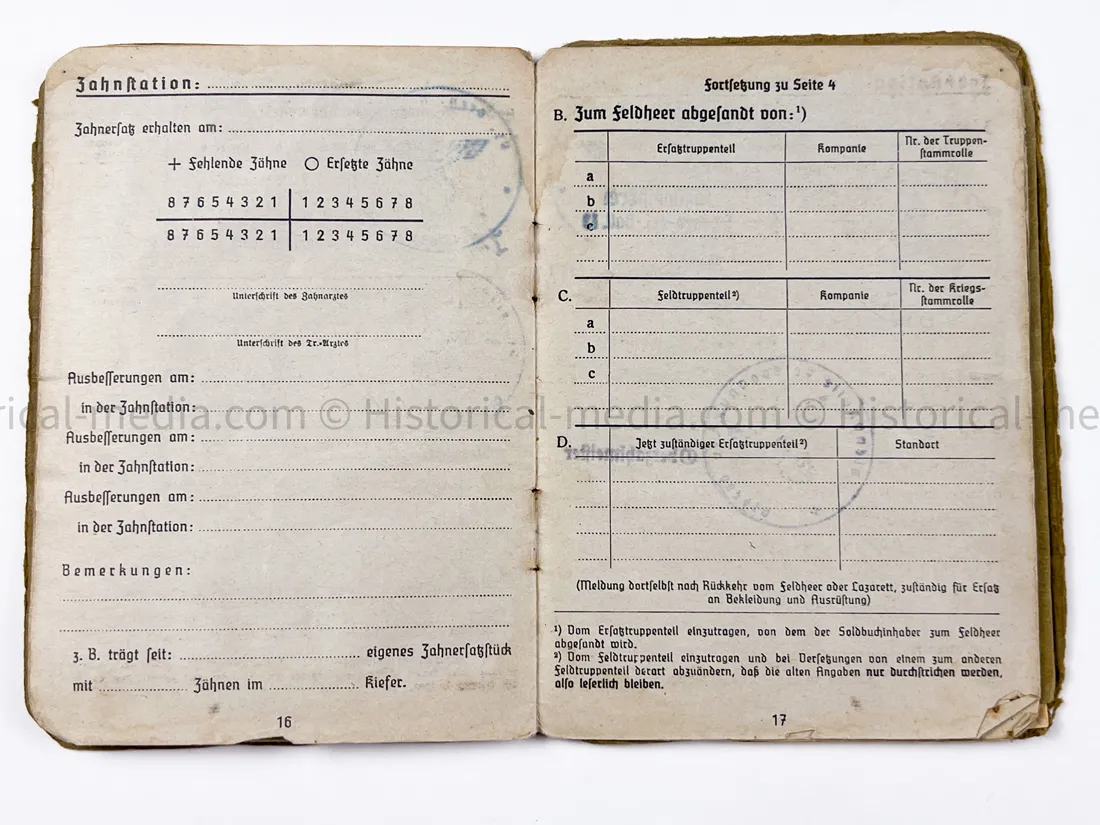 Zahnstation:
Zahnersatz erhalten am:
+ Fehlende Zähne ○ Ersetzte Zähne
8 7 6 5 4 3 2 1 1 2 3 4 5 6 7 8
8 7 6 5 4 3 2 1 1 2 3 4 5 6 7 8
Unterschrift des Zahnarztes
Unterschrift des Tr.-Arztes
Ausbesserungen am:
in der Zahnstation:
Ausbesserungen am:
in der Zahnstation:
Ausbesserungen am:
in der Zahnstation:
Bemerkungen:
z. B. trägt seit: eigenes Zahnersatzstück
mit Zähnen im Kiefer.
16
Fortsetzung zu Seite 4
B. Zum Feldheer abgesandt von:¹)
Ersatztruppenteil Kompanie Nr. der Truppen-
stammrolle
a
b
c
C. Feldtruppenteil²) Kompanie Nr. der Kriegs-
stammrolle
a
b
c
D. Jetzt zuständiger Ersatztruppenteil²) Standort
(Meldung dortselbst nach Rückkehr vom Feldheer oder Lazarett, zuständig für Ersatz
an Bekleidung und Ausrüstung)
¹) Vom Ersatztruppenteil einzutragen, von dem der Soldbuchinhaber zum Feldheer
abgesandt wird.
²) Vom Feldtruppenteil einzutragen und bei Versetzungen von einem zum anderen
Feldtruppenteil derart abzuändern, daß die alten Angaben nur durchstrichen werden,
also leserlich bleiben.
17
Historical-media.com © Historical-media.com © Historical-me